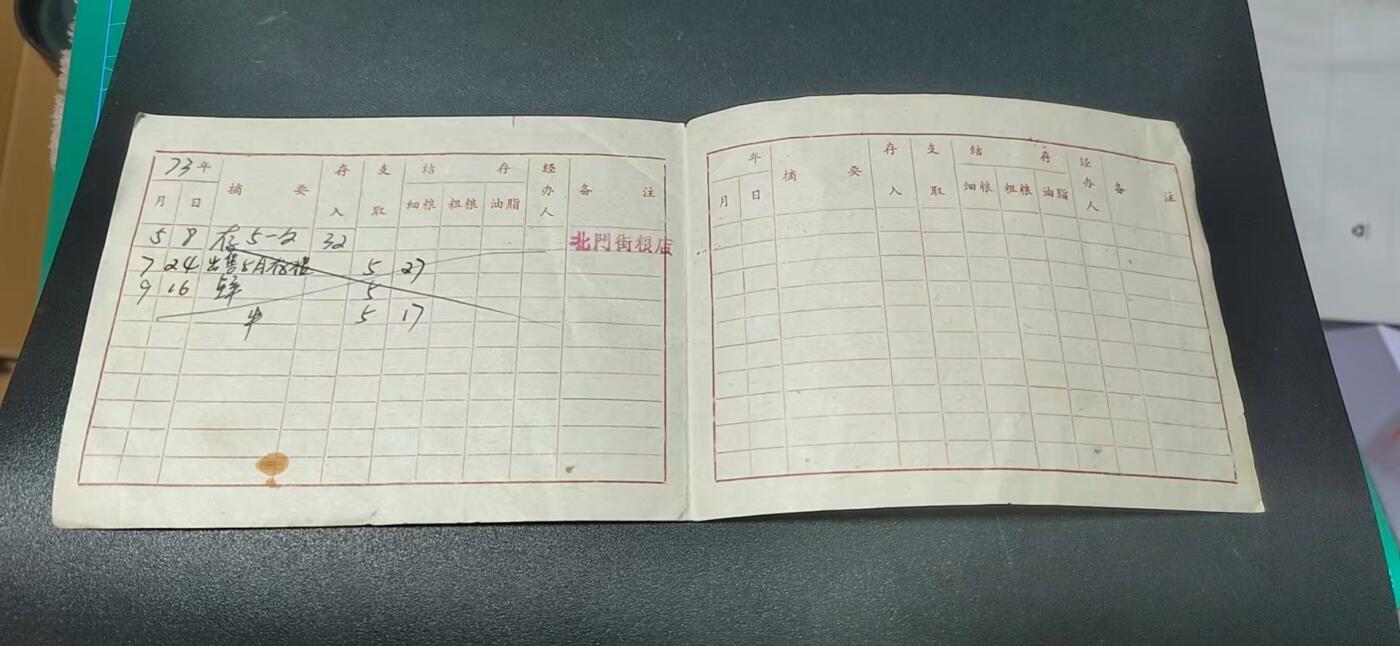 73年 摘要 存入 支取 结存 经办人 备注
月 日 细粮 粗粮 油脂
5 8 存5- 32 北門街粮店
7 24 出售5月存粮 5 27
9 16 5
5 17
年 摘要 存入 支取 结存 经办人 备注
月 日 细粮 粗粮 油脂